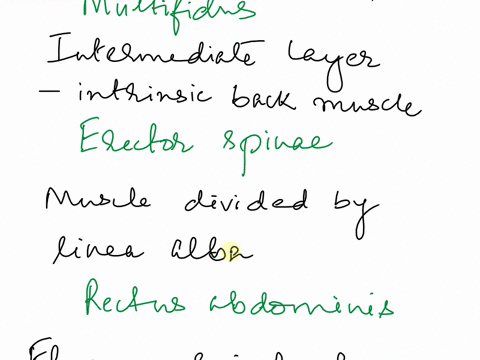 Multifidus
Intermediate layer
- intrinsic back muscle
Erector spinae
Muscle divided by
linea alba
Rectus abdominis